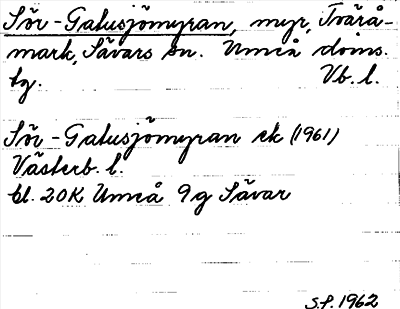 Sör-Galusjömyran, myr, Tvärå-
mark, Sävars sn. Umeå doms.
tg. Vb. l.
Sör-Galusjömyran ek (1961)
Västerb. l.
bl. 20K Umeå 9g Sävar
S.P. 1962